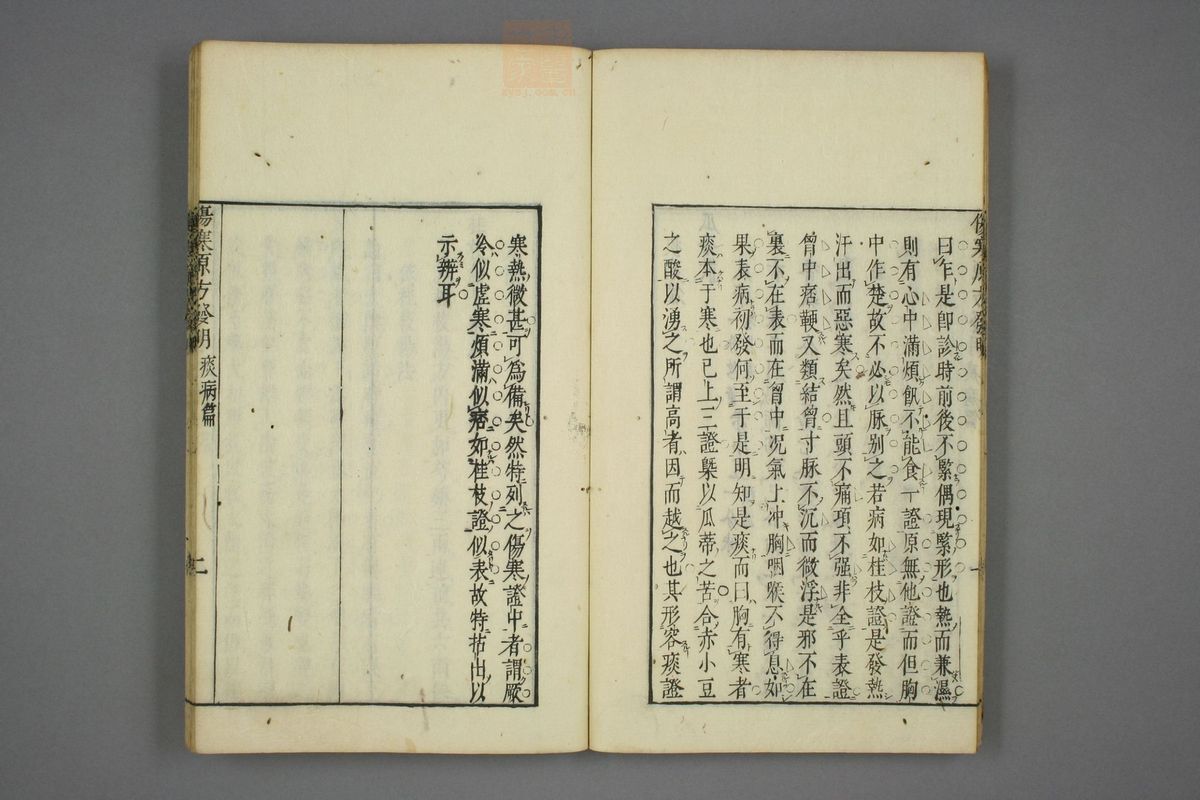 傷寒原方發明
曰乍是卽診時前後不緊偶現緊形也熱而兼濕
則有心中滿煩飮不能食一證原無他證而但胸
中作楚故不必以脉别之若病如桂枝證是發熱
汗出而惡寒矣然且頭不痛項不强非全乎表證
曾中痞鞕又類結曾寸脉不沉而微浮是邪不在
裏不在表而在曾中况氣上冲胸咽喉不得息如
果表病初發何至于是明知是痰而曰胸有寒者
痰本于寒也已上三證槩以瓜蒂之苦合赤小豆
之酸以湧之所謂高者因而越之也其形容痰證
寒熱微甚可爲備矣然特列之傷寒證中者謂厥
冷似虛寒煩滿似痞如桂枝證似表故特拈出以
示辨耳
傷寒原方發明 痰病篇 二